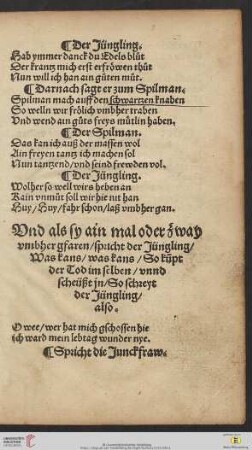 ¶Der Jüngling.
Hab ymmer danck du Edels blüt
Der krantz mich erst erfröwen thüt
Nun will ich han ain güten müt.
¶Darnach sagt er zum Spilman.
Spilman mach auff den schwartzen knaben
So welln wir frölich vmbher traben
Vnd wend ain güts freys mütlin haben.
¶Der Spilman.
Das kan ich auß der massen wol
Ain freyen tantz ich machen sol
Nun tantzend/vnd seind frewden vol.
¶Der Jüngling.
Wolher so well wirs heben an
Kain vnmüt soll wir hie nit han
Huy/Huy/fahr schon/laß vmbher gan.
Vnd als sy ain mal oder zway
vmbher gfaren/spricht der Jüngling/
Was kans/was kans/So küpt
der Tod im selben/vnnd
scheüßt jn/So schreyt
der Jüngling/
also.
O wee/wer hat mich gschossen hie
ich ward mein lebtag wunder nye.
¶Spricht die Junckfraw.